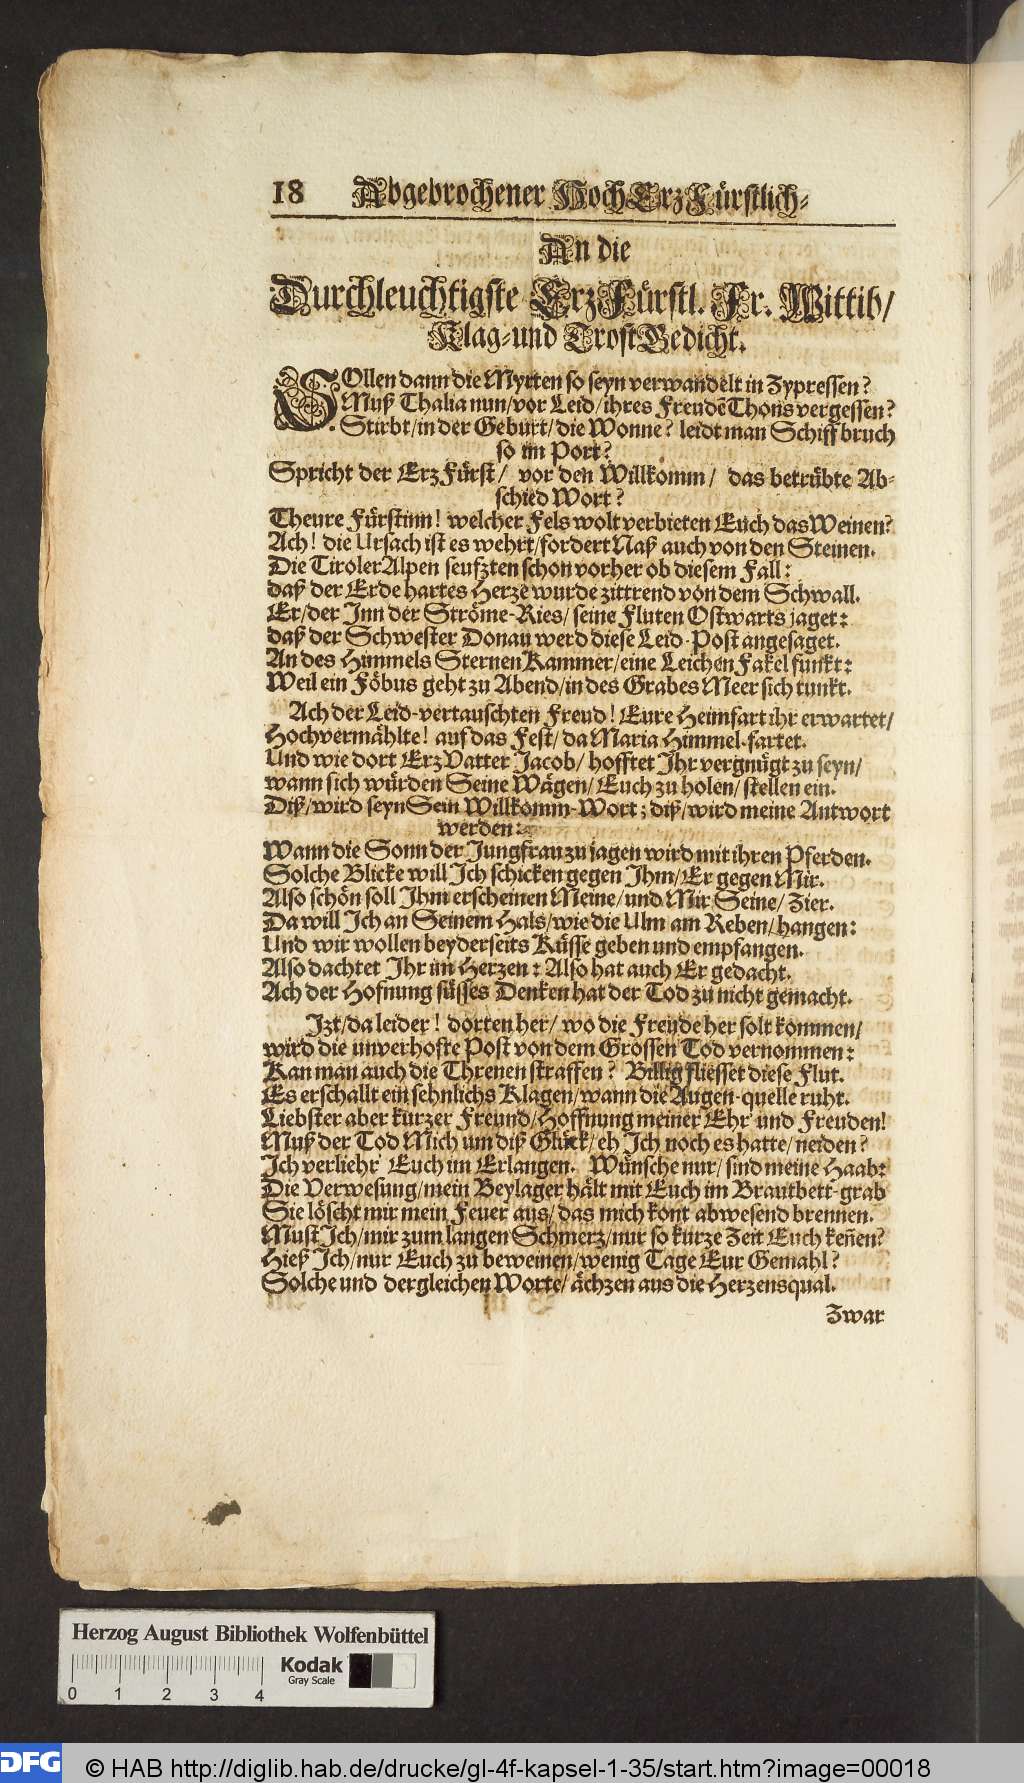 18 Abgebrochener HochErzFürstlich-
An die
Durchleuchtigste ErzFürstl. Fr. Wittib/
Klag-und TrostGedicht.
SOllen dann die Myrten so seyn verwandelt in Zypressen?
Muß Thalia nun/vor Leid/ihres FreudēThons vergessen?
Stirbt/in der Geburt/die Wonne? leidt man Schiffbruch
so im Port?
Spricht der ErzFürst/ vor den Willkomm/ das betrübte Ab-
schied Wort?
Theure Fürstinn! welcher Fels wolt verbieten Euch das Weinen?
Ach! die Ursach ist es wehrt/fordert Naß auch von den Steinen.
Die TirolerAlpen seufzten schon vorher ob diesem Fall:
daß der Erde hartes Herze wurde zittrend von dem Schwall.
Er/der Inn der Ströme-Ries/seine Fluten Ostwarts jaget:
daß der Schwester Donau werd diese Leid-Post angesaget.
An des Himmels SternenKammer/eine LeichenFakel funkt:
Weil ein Föbus geht zu Abend/in des Grabes Meer sich tunkt.
Ach der Leid-vertauschten Freud! Eure Heimfart ihr erwartet/
Hochvermählte! auf das Fest/da Maria Himmel-fartet.
Und wie dort ErzVatter Jacob/hofftet Ihr vergnügt zu seyn/
wann sich würden Seine Wägen/Euch zu holen/stellen ein.
Diß/wird seyn Sein Willkomm-Wort; diß/wird meine Antwort
werden:
Wann die Sonn der Jungfrau zu jagen wird mit ihren Pferden.
Solche Blicke will Ich schicken gegen Ihm/Er gegen Mir.
Also schön soll Ihm erscheinen Meine/und Mir Seine/Zier.
Da will Ich an Seinem Hals/wie die Ulm am Reben/hangen:
Und wir wollen beyderseits Küsse geben und empfangen.
Also dachtet Ihr im Herzen: Also hat auch Er gedacht.
Ach der Hofnung süsses Denken hat der Tod zu nicht gemacht.
Izt/da leider! dorten her/wo die Freude her solt kommen/
wird die unverhofte Post von dem Grossen Tod vernommen:
Kan man auch die Threnen straffen? Billig fliesset diese Flut.
Es erschallt ein sehnlichs Klagen/wann die Augen-quelle ruht.
Liebster aber kurzer Freund/Hoffnung meiner Ehr und Freuden!
Muß der Tod Mich um diß Glück/eh Ich noch es hatte/neiden?
Ich verliehr Euch im Erlangen. Wünsche nur/sind meine Haab:
Die Verwesung/mein Beylager hält mit Euch im Brautbett-grab
Sie löscht mir mein Feuer aus/das mich kont abwesend brennen.
Must Ich/mir zum langen Schmerz/nur so kurze Zeit Euch keñen?
Hieß Ich/nur Euch zu beweinen/wenig Tage Eur Gemahl?
Solche und dergleichen Worte/ächzen aus die Herzensqual.
Zwar
Herzog August Bibliothek Wolfenbüttel
Kodak
Gray Scale
0 1 2 3 4
DFG © HAB http://diglib.hab.de/drucke/gl-4f-kapsel-1-35/start.htm?image=00018